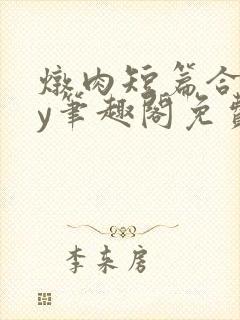 燉肉短篇合
y筆趣閣免費
李東房